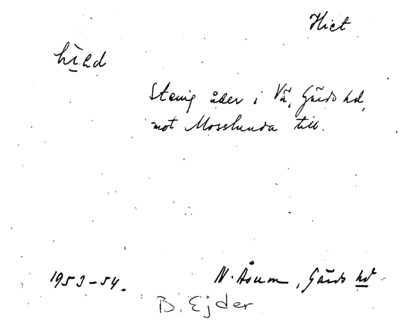 Hict
hild
Stenig åker i Vä, Gärds hd,
mot Mosslunda till.
1953-54.
N. Åsum, Gärds hd
B. Ejder